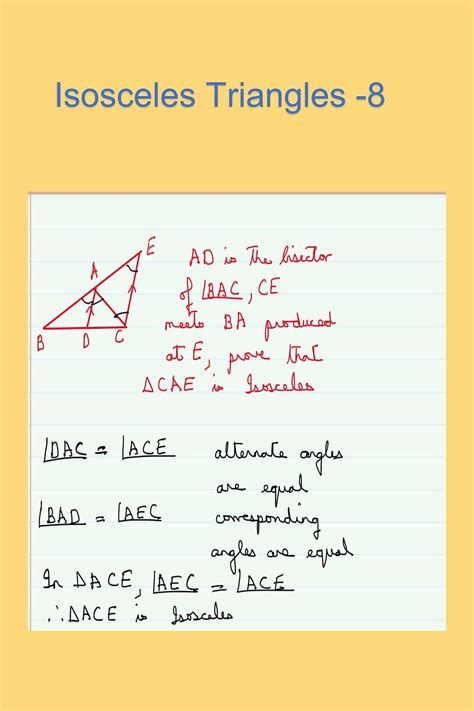 Isosceles Triangles -8
E
A
B D C
AD is the bisector
of ∠BAC, CE
meets BA produced
at E, prove that
ΔCAE is Isosceles
∠DAC = ∠ACE alternate angles
are equal
∠BAD = ∠AEC corresponding
angles are equal
In ΔACE, ∠AEC = ∠ACE
∴ ΔACE is Isosceles